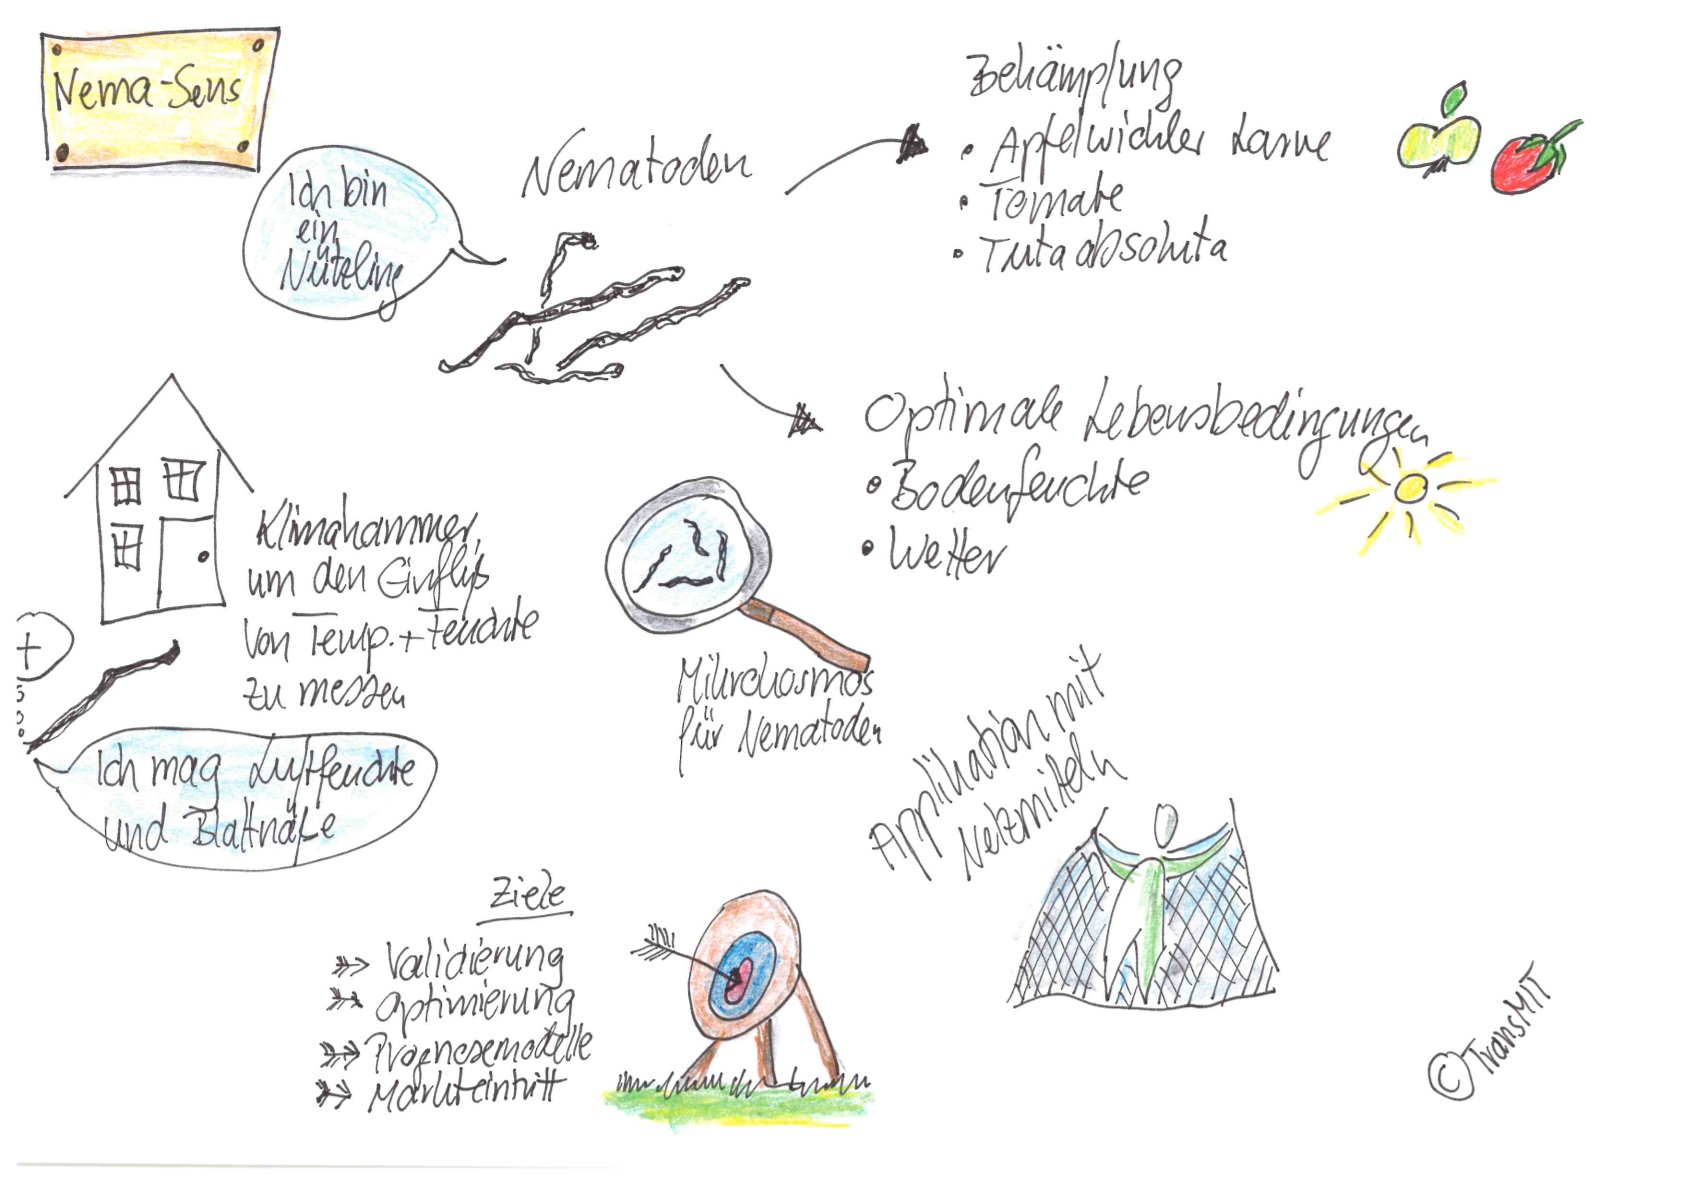 Nema-Sens
Ich bin
ein
Nützling
Nematoden
Bekämpfung
• Apfelwickler Larve
• Tomate
• Tuta absoluta
Optimale Lebensbedingungen
• Bodenfeuchte
• Wetter
Klimakammer,
um den Einfluß
von Temp. + Feuchte
zu messen
+
Ich mag Luftfeuchte
und Blattnäße
Mikrokosmos
für Nematoden
Applikation mit
Netzmitteln
Ziele
Validierung
Optimierung
Prognosemodelle
Markteintritt
© TransMIT